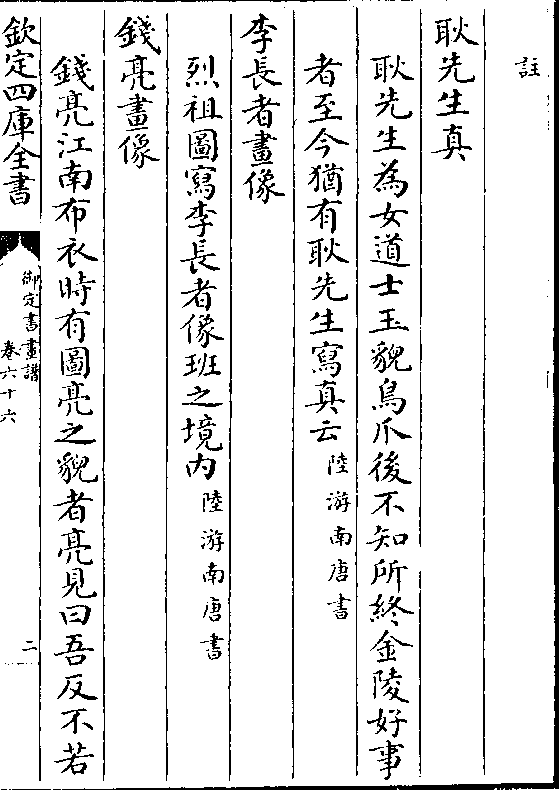 註
耿先生真
耿先生為女道士玉貌鳥爪後不知所終金陵好事
者至今猶有耿先生寫真云陸游南唐書
李長者畫像
烈祖圖寫李長者像班之境内陸游南唐書
錢亮畫像
錢亮江南布衣時有圖亮之貌者亮見曰吾反不若
欽定四庫全書
御定書畫譜
卷六十六
二